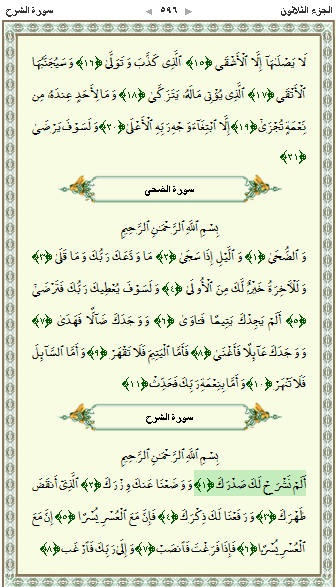 الجزء الثلاثون ٥٩٦ سورة الشرح
لَا يَصْلَىٰهَآ إِلَّا ٱلْأَشْقَى ﴿١٥﴾ ٱلَّذِى كَذَّبَ وَتَوَلَّىٰ ﴿١٦﴾ وَسَيُجَنَّبُهَا
ٱلْأَتْقَى ﴿١٧﴾ ٱلَّذِى يُؤْتِى مَالَهُۥ يَتَزَكَّىٰ ﴿١٨﴾ وَمَا لِأَحَدٍ عِندَهُۥ مِن
نِّعْمَةٍ تُجْزَىٰٓ ﴿١٩﴾ إِلَّا ٱبْتِغَآءَ وَجْهِ رَبِّهِ ٱلْأَعْلَىٰ ﴿٢٠﴾ وَلَسَوْفَ يَرْضَىٰ
﴿٢١﴾
سورة الضحى
بِسْمِ ٱللَّهِ ٱلرَّحْمَٰنِ ٱلرَّحِيمِ
وَٱلضُّحَىٰ ﴿١﴾ وَٱلَّيْلِ إِذَا سَجَىٰ ﴿٢﴾ مَا وَدَّعَكَ رَبُّكَ وَمَا قَلَىٰ ﴿٣﴾
وَلَلْءَاخِرَةُ خَيْرٌ لَّكَ مِنَ ٱلْأُولَىٰ ﴿٤﴾ وَلَسَوْفَ يُعْطِيكَ رَبُّكَ فَتَرْضَىٰٓ
﴿٥﴾ أَلَمْ يَجِدْكَ يَتِيمًا فَـَٔاوَىٰ ﴿٦﴾ وَوَجَدَكَ ضَآلًّا فَهَدَىٰ ﴿٧﴾
وَوَجَدَكَ عَآئِلًا فَأَغْنَىٰ ﴿٨﴾ فَأَمَّا ٱلْيَتِيمَ فَلَا تَقْهَرْ ﴿٩﴾ وَأَمَّا ٱلسَّآئِلَ
فَلَا تَنْهَرْ ﴿١٠﴾ وَأَمَّا بِنِعْمَةِ رَبِّكَ فَحَدِّثْ ﴿١١﴾
سورة الشرح
بِسْمِ ٱللَّهِ ٱلرَّحْمَٰنِ ٱلرَّحِيمِ
أَلَمْ نَشْرَحْ لَكَ صَدْرَكَ ﴿١﴾ وَوَضَعْنَا عَنكَ وِزْرَكَ ﴿٢﴾ ٱلَّذِىٓ أَنقَضَ
ظَهْرَكَ ﴿٣﴾ وَرَفَعْنَا لَكَ ذِكْرَكَ ﴿٤﴾ فَإِنَّ مَعَ ٱلْعُسْرِ يُسْرًا ﴿٥﴾ إِنَّ مَعَ
ٱلْعُسْرِ يُسْرًا ﴿٦﴾ فَإِذَا فَرَغْتَ فَٱنصَبْ ﴿٧﴾ وَإِلَىٰ رَبِّكَ فَٱرْغَب ﴿٨﴾